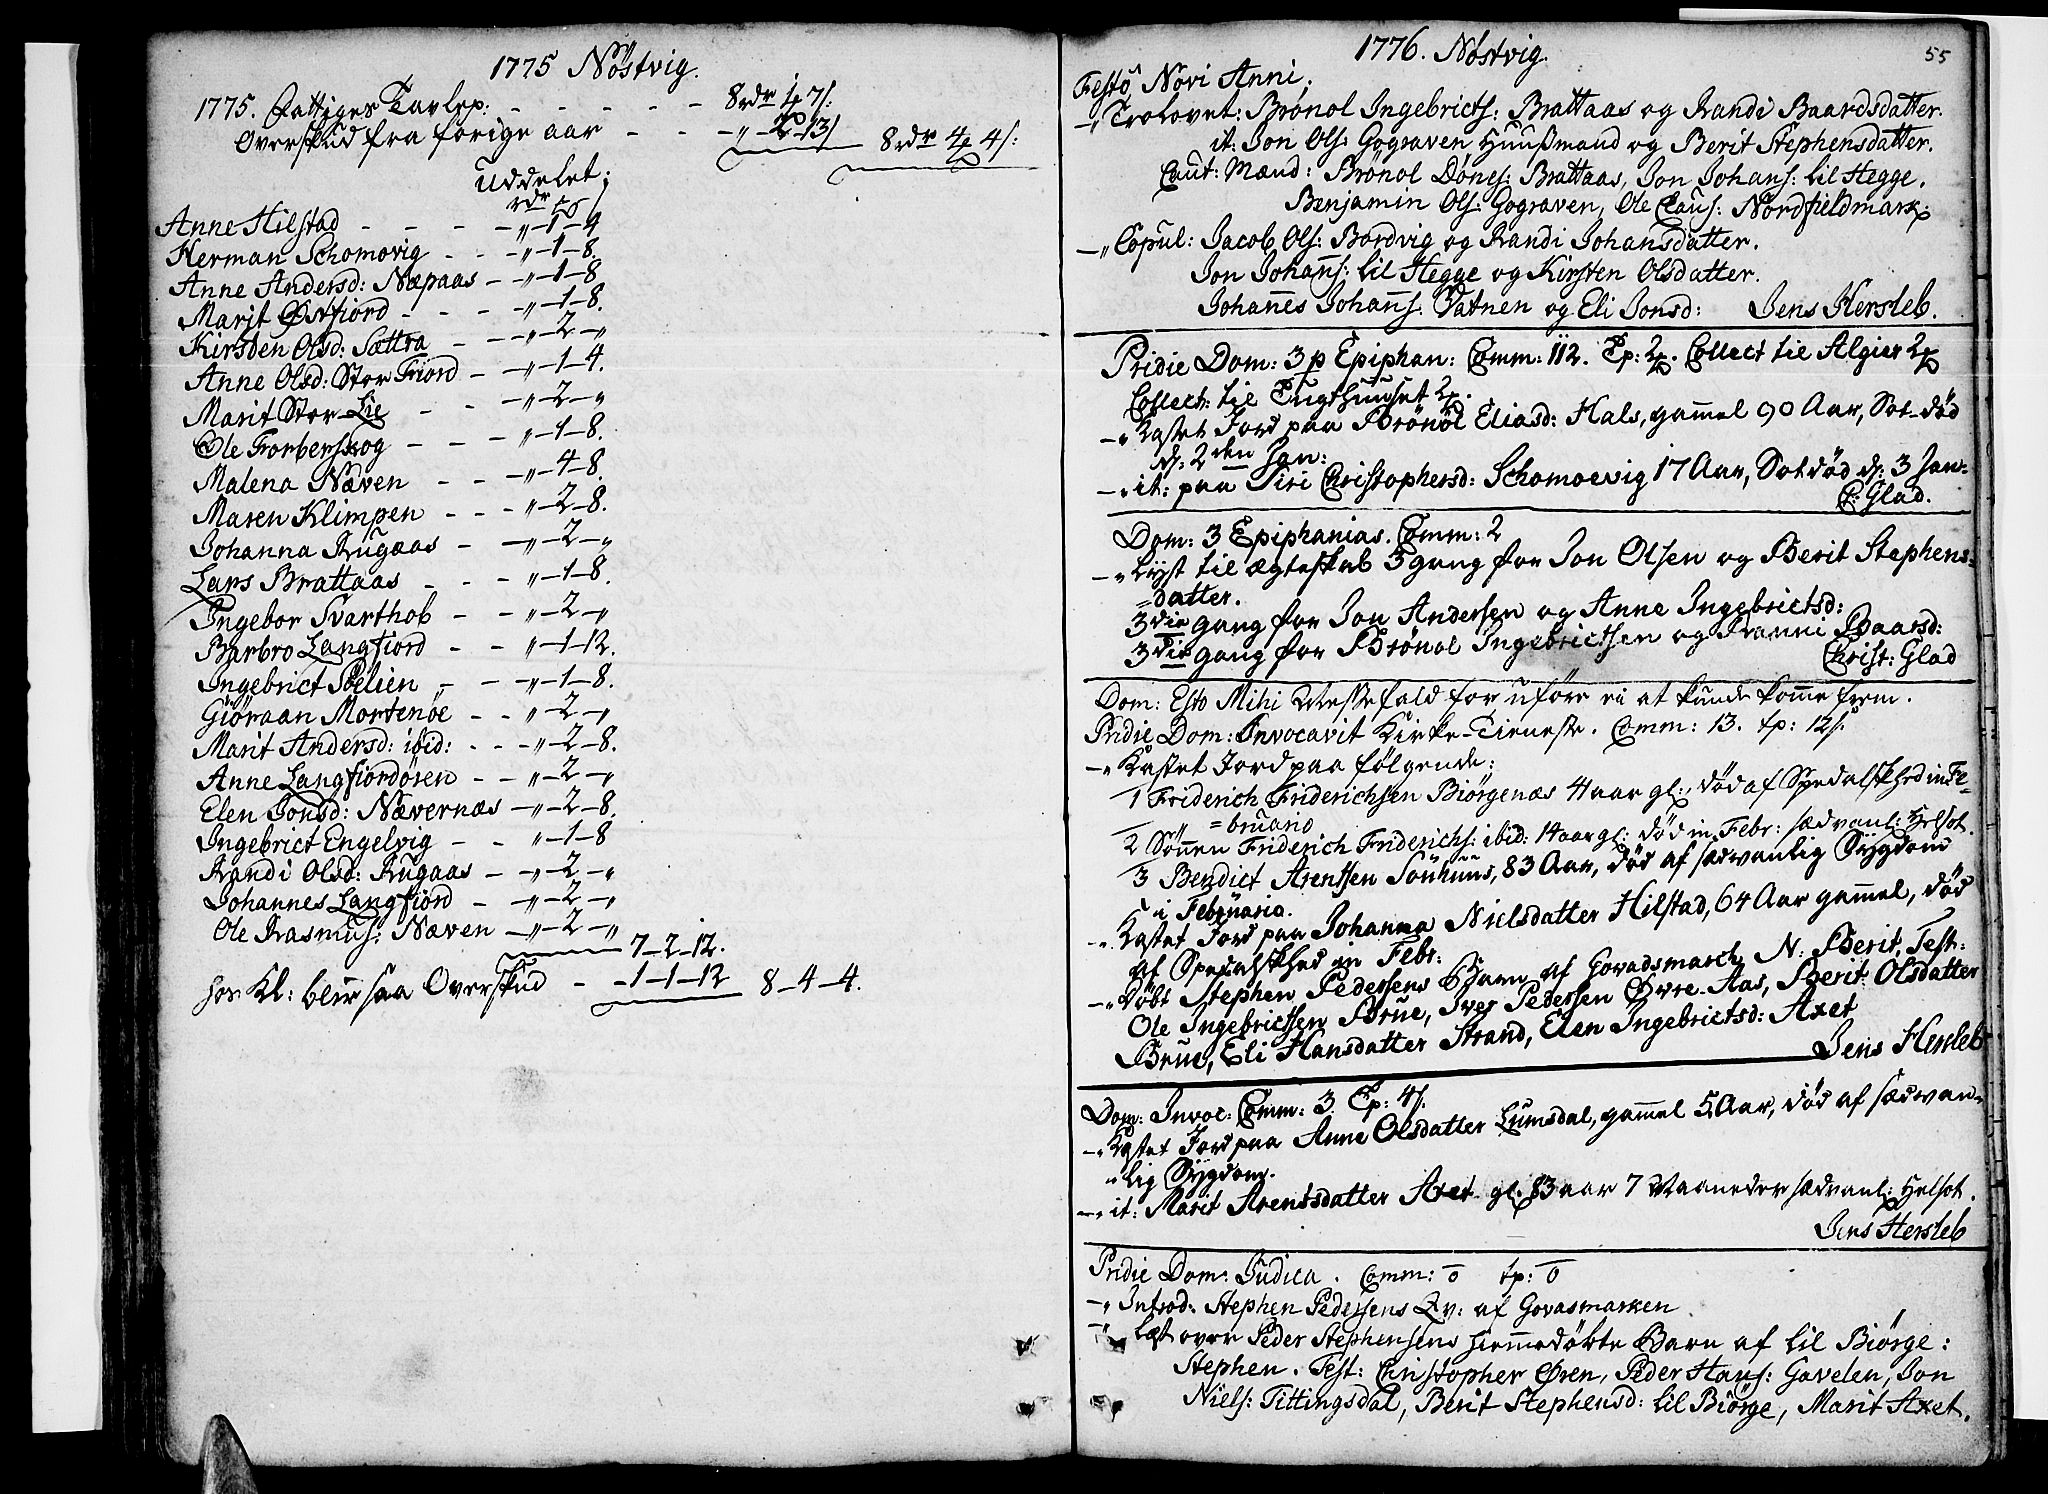 1775 Nöstvig.
1775. Fattiges Tavlep: - - - - - 8 rdr 1 ₰ 7 s:
Overskud fra forige aar - - - „ - 2 - 13 s 8 rdr 4 ₰ 4 s:
Uddelet:
rdr ₰ s
Anne Hilstad - - - - „ - 1 - 4
Herman Schomovig - - - „ - 1 - 8.
Anne Andersd: Næpaas - „ - 1 - 8
Marit Østfiord - - - „ - 1 - 8.
Kirsten Olsd: Sættra - - „ - 2 - „
Anne Olsd: Stor Fiord - „ - 1 - 4.
Marit Stor-Lie - - „ - 2 - „
Ole Frorberskog - - - „ - 1 - 8.
Malena Næven - - „ - 4 - 8.
Maren Klimpen - - - „ - 2 - 8.
Johanna Rugaas - - „ - 2 - „
Lars Brattaas - - - „ - 1 - 8.
Ingebor Svarthob - - „ - 2 - „
Barbro Langfiord - - „ - 1 - 12.
Ingebrict Selien - - „ - 1 - 8.
Giöraan Mortenöe - - „ - 2 - „
Marit Andersd: ibid: - - - „ - 2 - 8.
Anne Langfiordören - - „ - 2 - „
Elen Jonsd: Nævernæs - „ - 2 - 8.
Ingebrict Engelvig - - „ - 1 - 8
Randi Olsd: Rugaas - „ - 2 - „
Johannes Langfiord - „ - 2 - „
Ole Rasmus: Næven - „ - 2 - „
7 - 2 - 12.
hos Kl: blir saa Overskud - - 1 - 1 - 12 8 - 4 - 4.
55
1776. Nöstvig.
Festo Novi Anni,
- „ Trolovet: Brönol Ingebricts: Brattaas og Randi Baardsdatter.
it: Jon Ols: Gograven Huusmand og Berit Stephensdatter.
Caut: Mænd: Brönol Dönes: Brattaas, Jon Johans: lil Hegge.
Benjamin Ols: Gograven, Ole Claus: Nordfieldmark.
- „ Copul: Jacob Ols: Bordvig og Randi Johansdatter.
Jon Johans: lil Hegge og Kirsten Olsdatter.
Johannes Johans. Vatnen og Eli Jonsd: Jens Hersleb.
Pridie Dom: 3 p Epiphan: Comm: 112. Tp: 2 ₰. Collect til Algier 2 ₰
Collect: til Tugthuuset 2 ₰.
- „ Kastet Jord paa Brönöl Eliasd: Hals, gammel 90 Aar, Sot-död
d: 2den Jan:
- „ it: paa Siri Christophersd: Schomoevig 17 Aar, Sotdöd d: 3 Jan-
C: Glad.
Dom: 3 Epiphanias. Comm: 2
- „ Lyst til ægteskab 3 gang for Jon Olsen og Berit Stephens-
=datter.
3die gang for Jon Andersen og Anne Ingebrictsd:
3die gang for Brönol Ingebrictsen og Ranni Baarsd:
Christ: Glad
Dom: Esto Mihi Messefald for uföre ei at kunde komme frem.
Pridie Dom: Invocavit Kirke-Tieneste. Comm: 13. tp: 12 s.
- „ Kastet Jord paa fölgende:
1 Friderich Friderichsen Biörgenæs 41 aar gl:, död af Spedalskhed in Fe-
=bruario
2 Sönnen Friderich Friderichs: ibid: 14 aar gl: död in Febr: sædvanl: Helsot.
3 Bendict Arentsen Sönhuus, 83 Aar, död af sædvanlig Sygdom
i Februario.
- „ Kastet Jord paa Johanna Nielsdatter Hilstad, 64 Aar gammel, död
af Spedalskhed in Febr:
- „ Döbt Stephen Pedersens Barn af Govadsmarch N: Berit, Test:
Ole Ingebrictsen Brue, Iver Pedersen Øvre-Aas, Berit Olsdatter
Brue, Eli Hansdatter Strand, Elen Ingebrictsd: Axet
Jens Hersleb
Dom: Invoc: Comm: 3 Tp: 4 s.
- „ Kastet Jord paa Anne Olsdatter Lumsdal, gammel 5 Aar, död af sædvan-
„ lig Sygdom.
- „ it: Marit Arentsdatter Axet gl: 83 aar 7 Maaneder sædvanl: Helsot.
Jens Hersleb
Pridie Dom: Judica. Comm: 0 tp: 0
- „ Introd: Stephen Pedersens Qv: af Govasmarken
- „ Læst over Peder Stephensens Hiemmedöbte Barn af lil Biörge:
Stephen. Test: Christopher Øren, Peder Hans: Gavelen, Jon
Niels: Tittingsdal, Berit Stephensd: lil Biörge, Marit Axet.